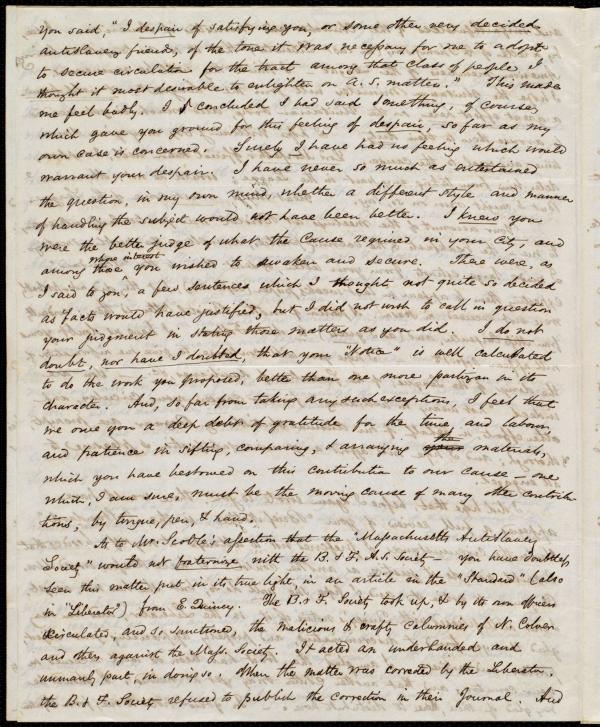 You said, "I despair of satisfying you, or some other very decided
antislavery friend, of the tone it was necessary for me to adopt
to secure circulation for the tract among that class of people I
thought it most desirable to enlighten on A. S. matters." This made
me feel badly. I concluded I had said something, of course,
which gave you ground for this feeling of despair, so far as my
own case is concerned. Surely I have had no feeling which would
warrant your despair. I have never so much as entertained
the question, in my own mind, whether a different style and manner
of handling the subject would not have been better. I knew you
were the better judge of what the Cause required in your City, and
among those whose interest you wished to awaken and secure. There were, as
I said to you, a few sentences which I thought not quite so decided
as facts would have justified, but I did not wish to call in question
your judgment in stating those matters as you did. I do not
doubt, nor have I doubted, that your "Notice" is well calculated
to do the work you proposed, better than one more partizan in its
character. And, so far from taking any such exceptions, I feel that
we owe you a deep debt of gratitude for the time and labour,
and patience in sifting, comparing, & arranging the materials,
which you have bestowed on this contribution to our cause – one
which, I am sure, must be the moving cause of many other contribu-
tions, by tongue, pen, & hand.
As to Mr. Scoble's assertion that the "Massachusetts Antislavery
Society" would not fraternize with the B. & F. A. S. Society – you have doubtless
seen this matter put in its true light, in an article in the "Standard" (also
in "Liberator"?) from E. Quincy. The B. & F. Society took up, & by its own officers
circulated, and so sanctioned, the malicious & crafty calumnies of N. Colver
and others against the Mass. Society. It acted an underhanded and
unmanly part, in doing so. When the matter was corrected by the Liberator,
the B. & F. Society refused to publish the correction in their Journal. And